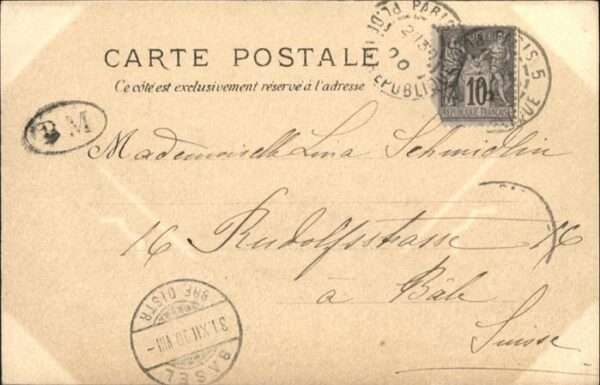 CARTE POSTALE
Ce côté est exclusivement réservé à l'adresse
PARIS 5
PL. DE LA RÉPUBLIQUE
10
RÉPUBLIQUE FRANÇAISE
B M
Mademoiselle Lina Schmidlin
16 Rudolfsstrasse 16
à Bâle
Suisse
BRF. DISTR.
31.XII.00.VIII-
BASEL